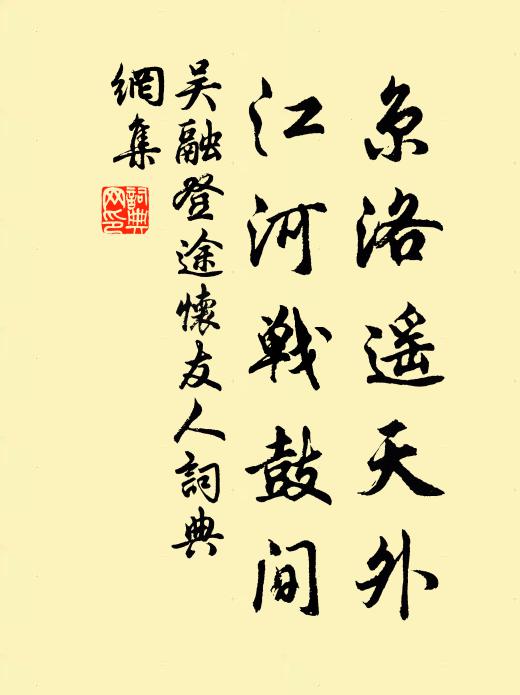 京洛遥天外
江河戦鼓间
吴融登途懷友人詞典
網集
詞典
网印